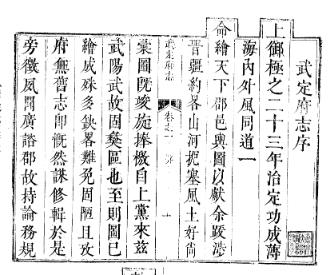 武定府志序
上御極之二十三年治定功成薄
海內外風同道一
命繪天下郡邑輿圖以獻余踆
晉疆約各山河扼塞風土好尚
武定府志
卷之一
序
十
彚圖既竣旋捧檄自上黨來茲
武陽武故固奥區也至則圖已
繪成殊多鈌畧難免固陋且攷
府無舊志卽慨然謀修輯於是
旁徵夙聞廣諮郡故持論務規